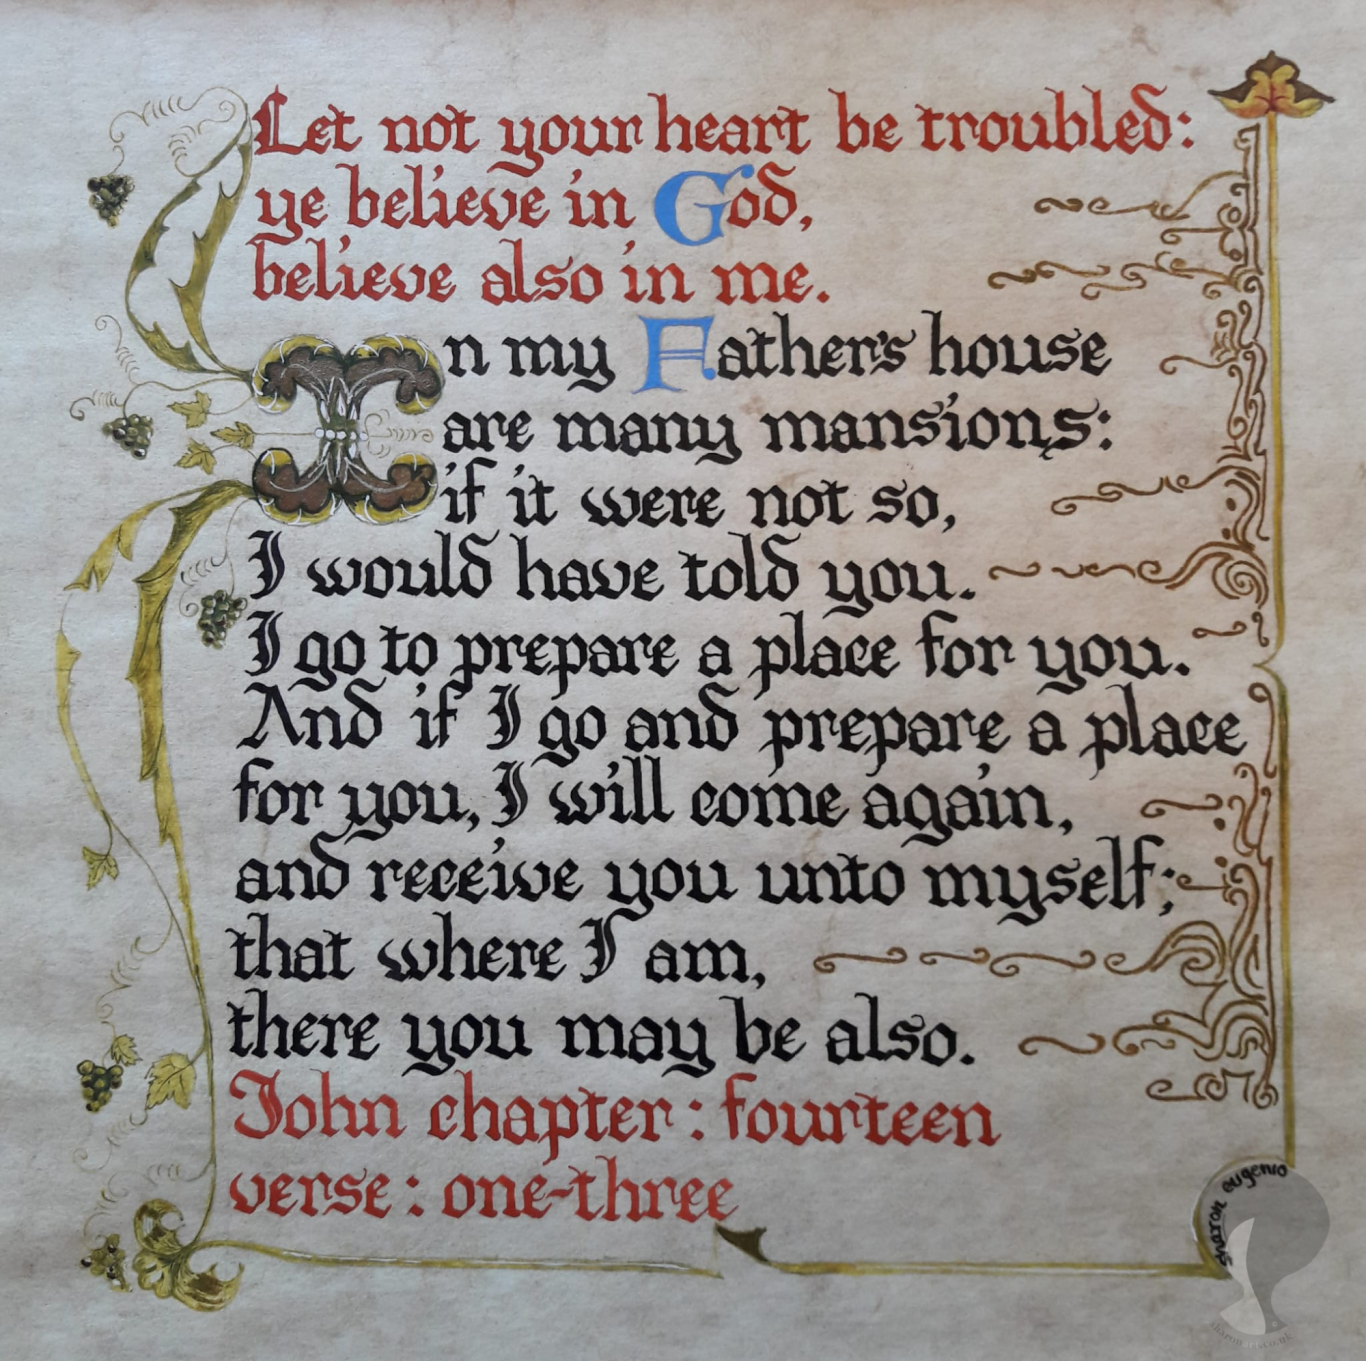 Let not your heart be troubled:
ye believe in God,
believe also in me.
In my Father's house
are many mansions:
if it were not so,
I would have told you.
I go to prepare a place for you.
And if I go and prepare a place
for you, I will come again,
and receive you unto myself;
that where I am,
there you may be also.
John chapter: fourteen
verse: one-three
sharon eugenio